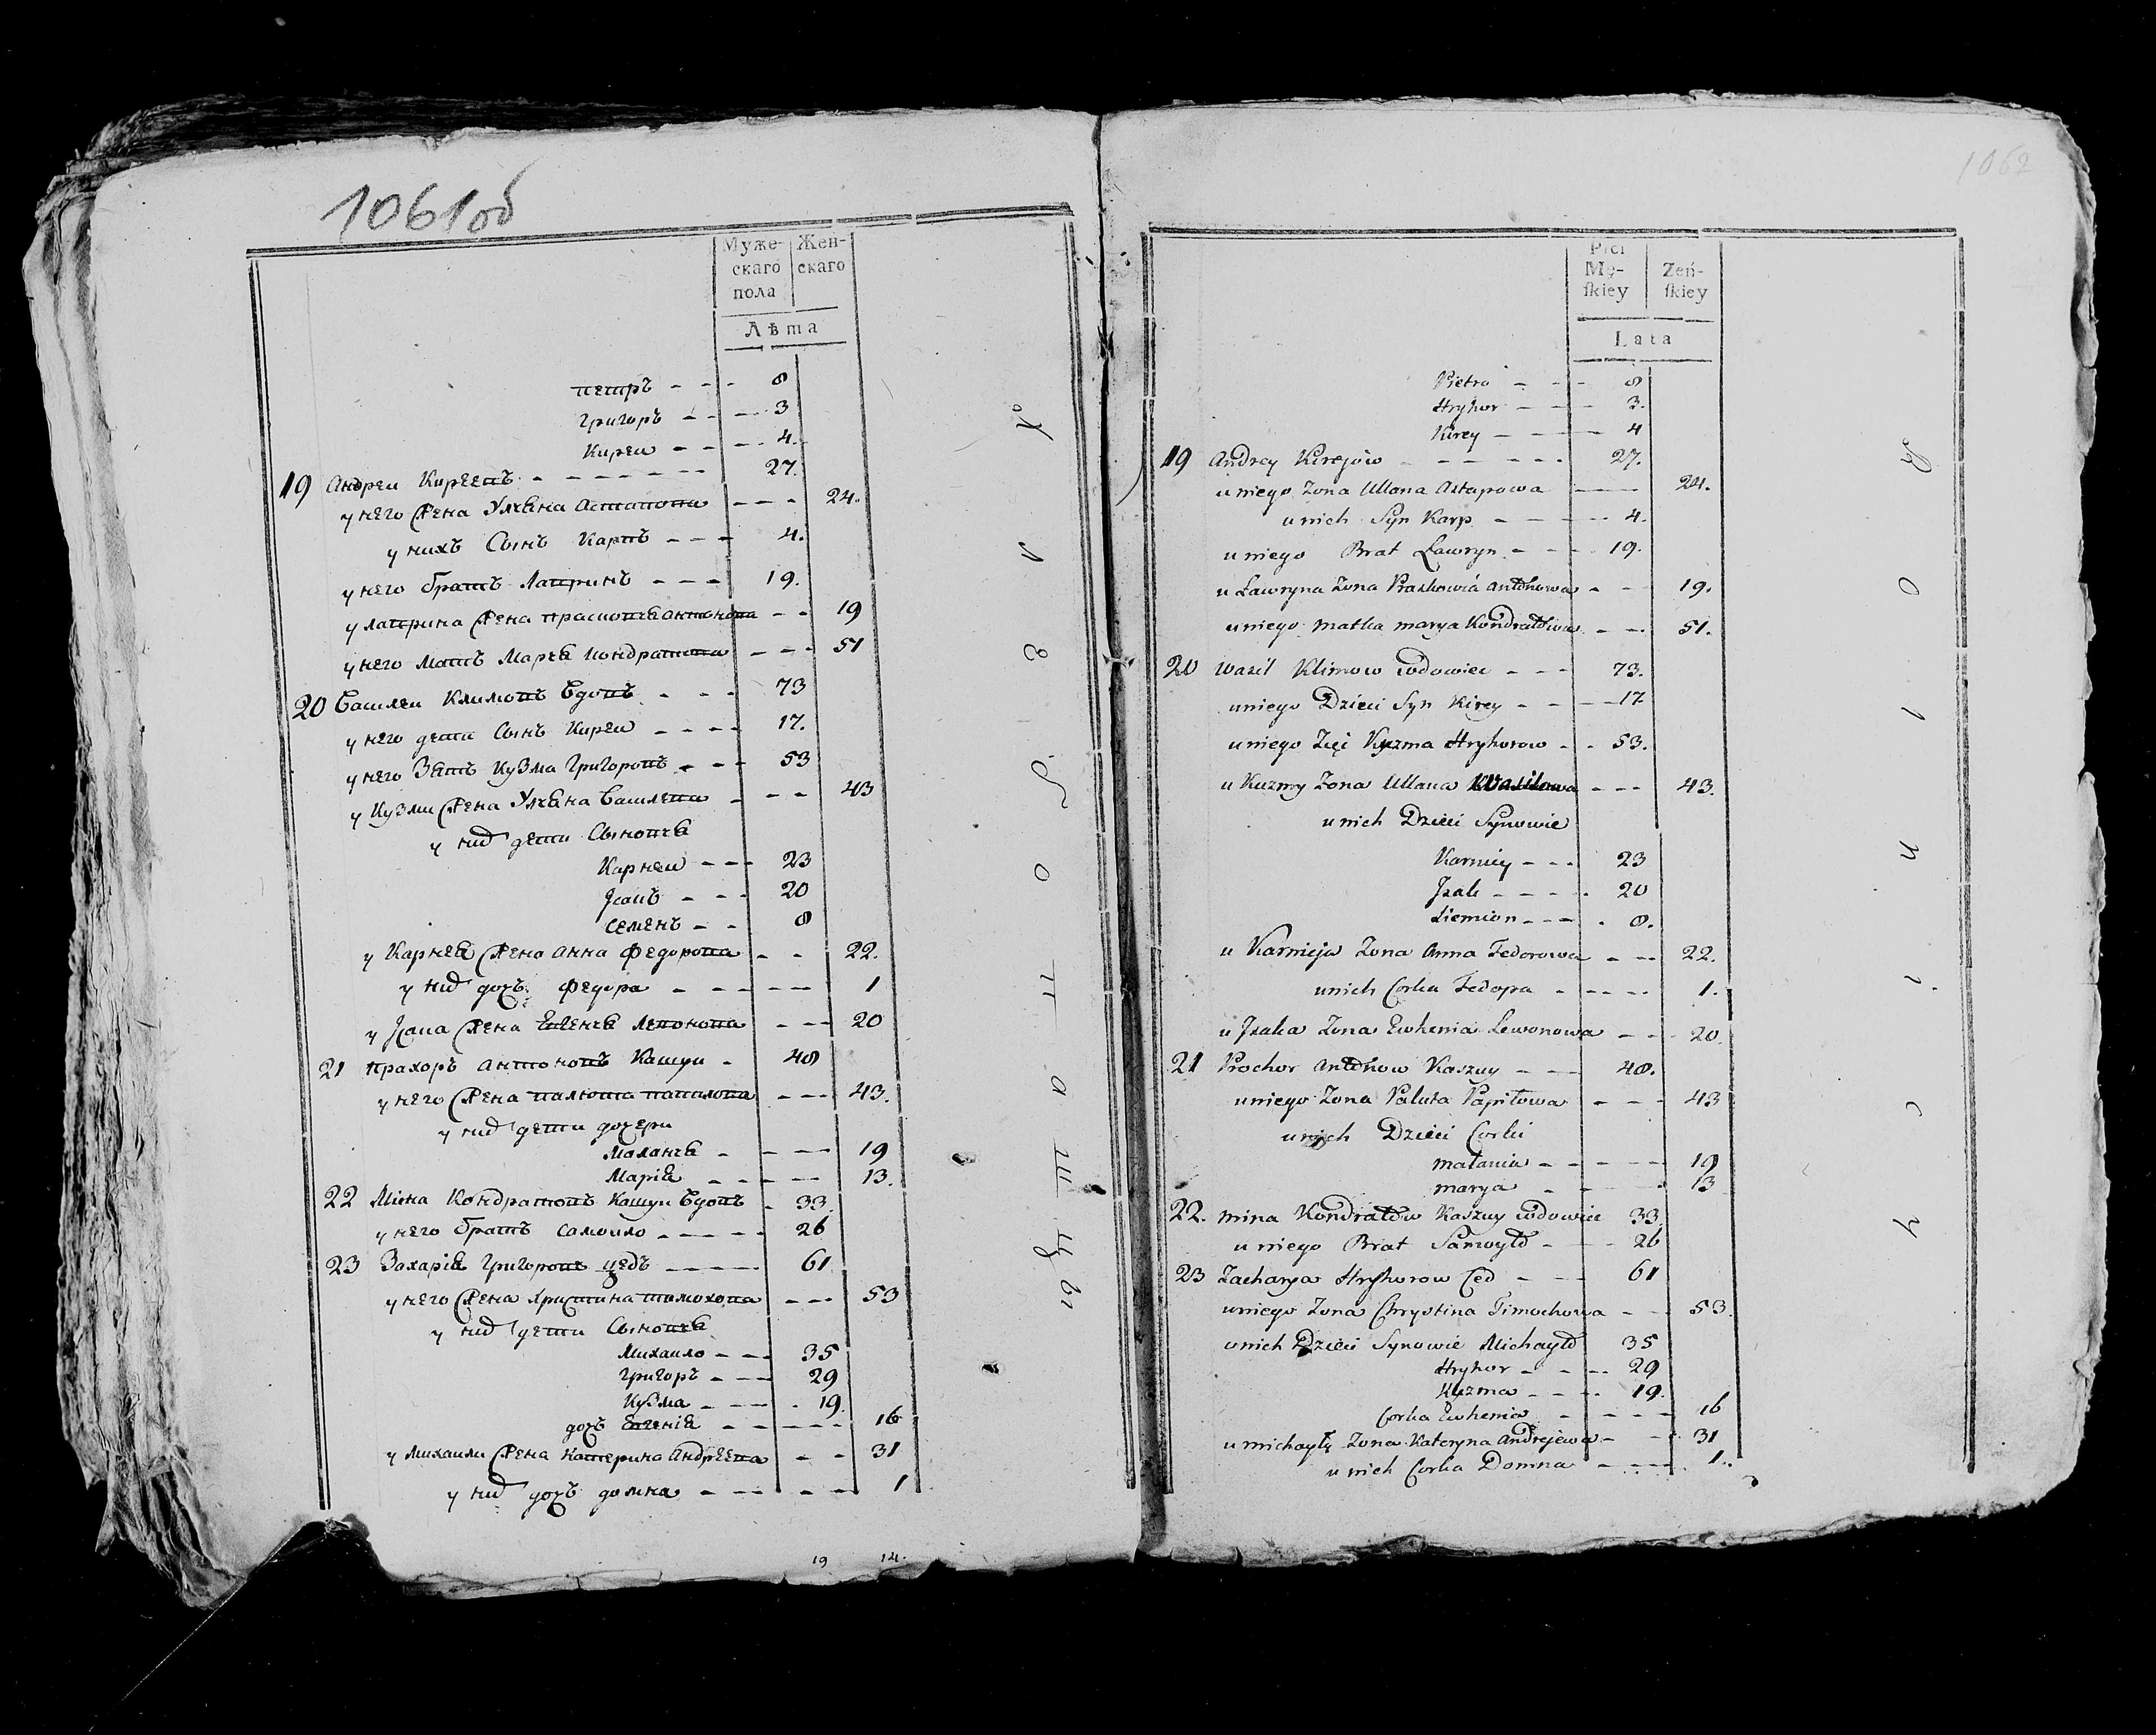 1061об
Муже-
скаго
пола
Жен-
скаго
Лѣта
петръ - - - 8
григоръ - - - 3
Киреи - - - 4.
19 Андреи Киреевъ - - - 27.
у него жена Улѣна Астапова - - - 24.
у нихъ Сынъ Карпъ - - - 4.
у него братъ Лавринъ - - - 19.
у лаврина жена прасковѣя антонова - - 19
у него мать Марѣя кондратова - - - 51
20 Василеи Климовъ вдовъ - - - 73
у него дети Сынъ Киреи - - - - 17.
у него Зять Кузма Григоровъ - - - 53
у Кузми жена Улѣна василева - - - 43
у них дети Сыновѣя
Карнеи - - - 23
Jсакъ - - - 20
семенъ - - 8
у Карнея жена анна федорова - - 22.
у них дочъ федора - - - - 1
у Jсака жена Евгенѣя левонова - - - 20
21 прахоръ антоновъ Кашуи - 48
у него жена палюта папилова - - - 43.
у них дети дочери
Маланѣя - - - - 19
Маріѣя - - - - 13.
22 Міна Кондратовъ Кашуи вдовъ - 33.
у него братъ самоило - - - - 26
23 Захаріѣя григоровъ цедъ - - - 61
у него жена христина тимохова - - - 53
у них дети Сыновѣя
Михаило - - - 35
григоръ - - - 29
Кузма - - - - 19.
дочъ Евгеніѣя - - - - - 16
у михаили жена катерина андреева - - 31
у них дочъ домна - - - - - 1
19 14.
1062
Płci
Mę-
skiey
Żeń-
skiey
Lata
Pietro - - - 8
Hryhor - - - 3.
Kirey - - - 4
19 Andrey Kirejów - - - - - 27.
u niego Zona Ullana Astapowa - - - 24.
u nich Syn Karp - - - - 4.
u niego Brat Ławryn - - - 19.
u Ławryna Zona Praskowiá Antonowa - - 19.
u niego matka marya Kondratowa - - 51.
20 Wasil Klimow wdowiec - - - 73.
u niego Dzieci Syn Kirey - - - 17.
u niego Zięć Kuzma Hryhorow - - 53.
u Kuzmy Zona Ullana Wasilowa - - - 43.
u nich Dzieci Synowie
Karniey - - - 23
Jzak - - - - 20
Siemion - - - 8.
u Karnieja Zona Anna Fedorowa - - - 22.
u nich Corka Fedora - - - - - 1.
u Jzaka Zona Ewhenia Lewonowa - - - 20.
21 Prochor Antonow Kaszuy - - - 48.
u niego Zona Paluta Papiłowa - - - 43
u nich Dzieci Corki
małania - - - - - 19
marya - - - - 13
22. mina Kondratow Kaszuy wdowiec 33.
u niego Brat Samoyło - - - 26
23 Zacharya Hryhorow Ced - - - 61
u niego Zona Chrystina Timochowa - - 53.
u nich Dzieci Synowie Michayło 35
Hryhor - - - - 29
Kuzma - - - 19.
Corka Ewhenia - - - - - 16
u michayły Zona Kateryna Andrejewa - - 31
u nich Corka Domna - - - - 1.